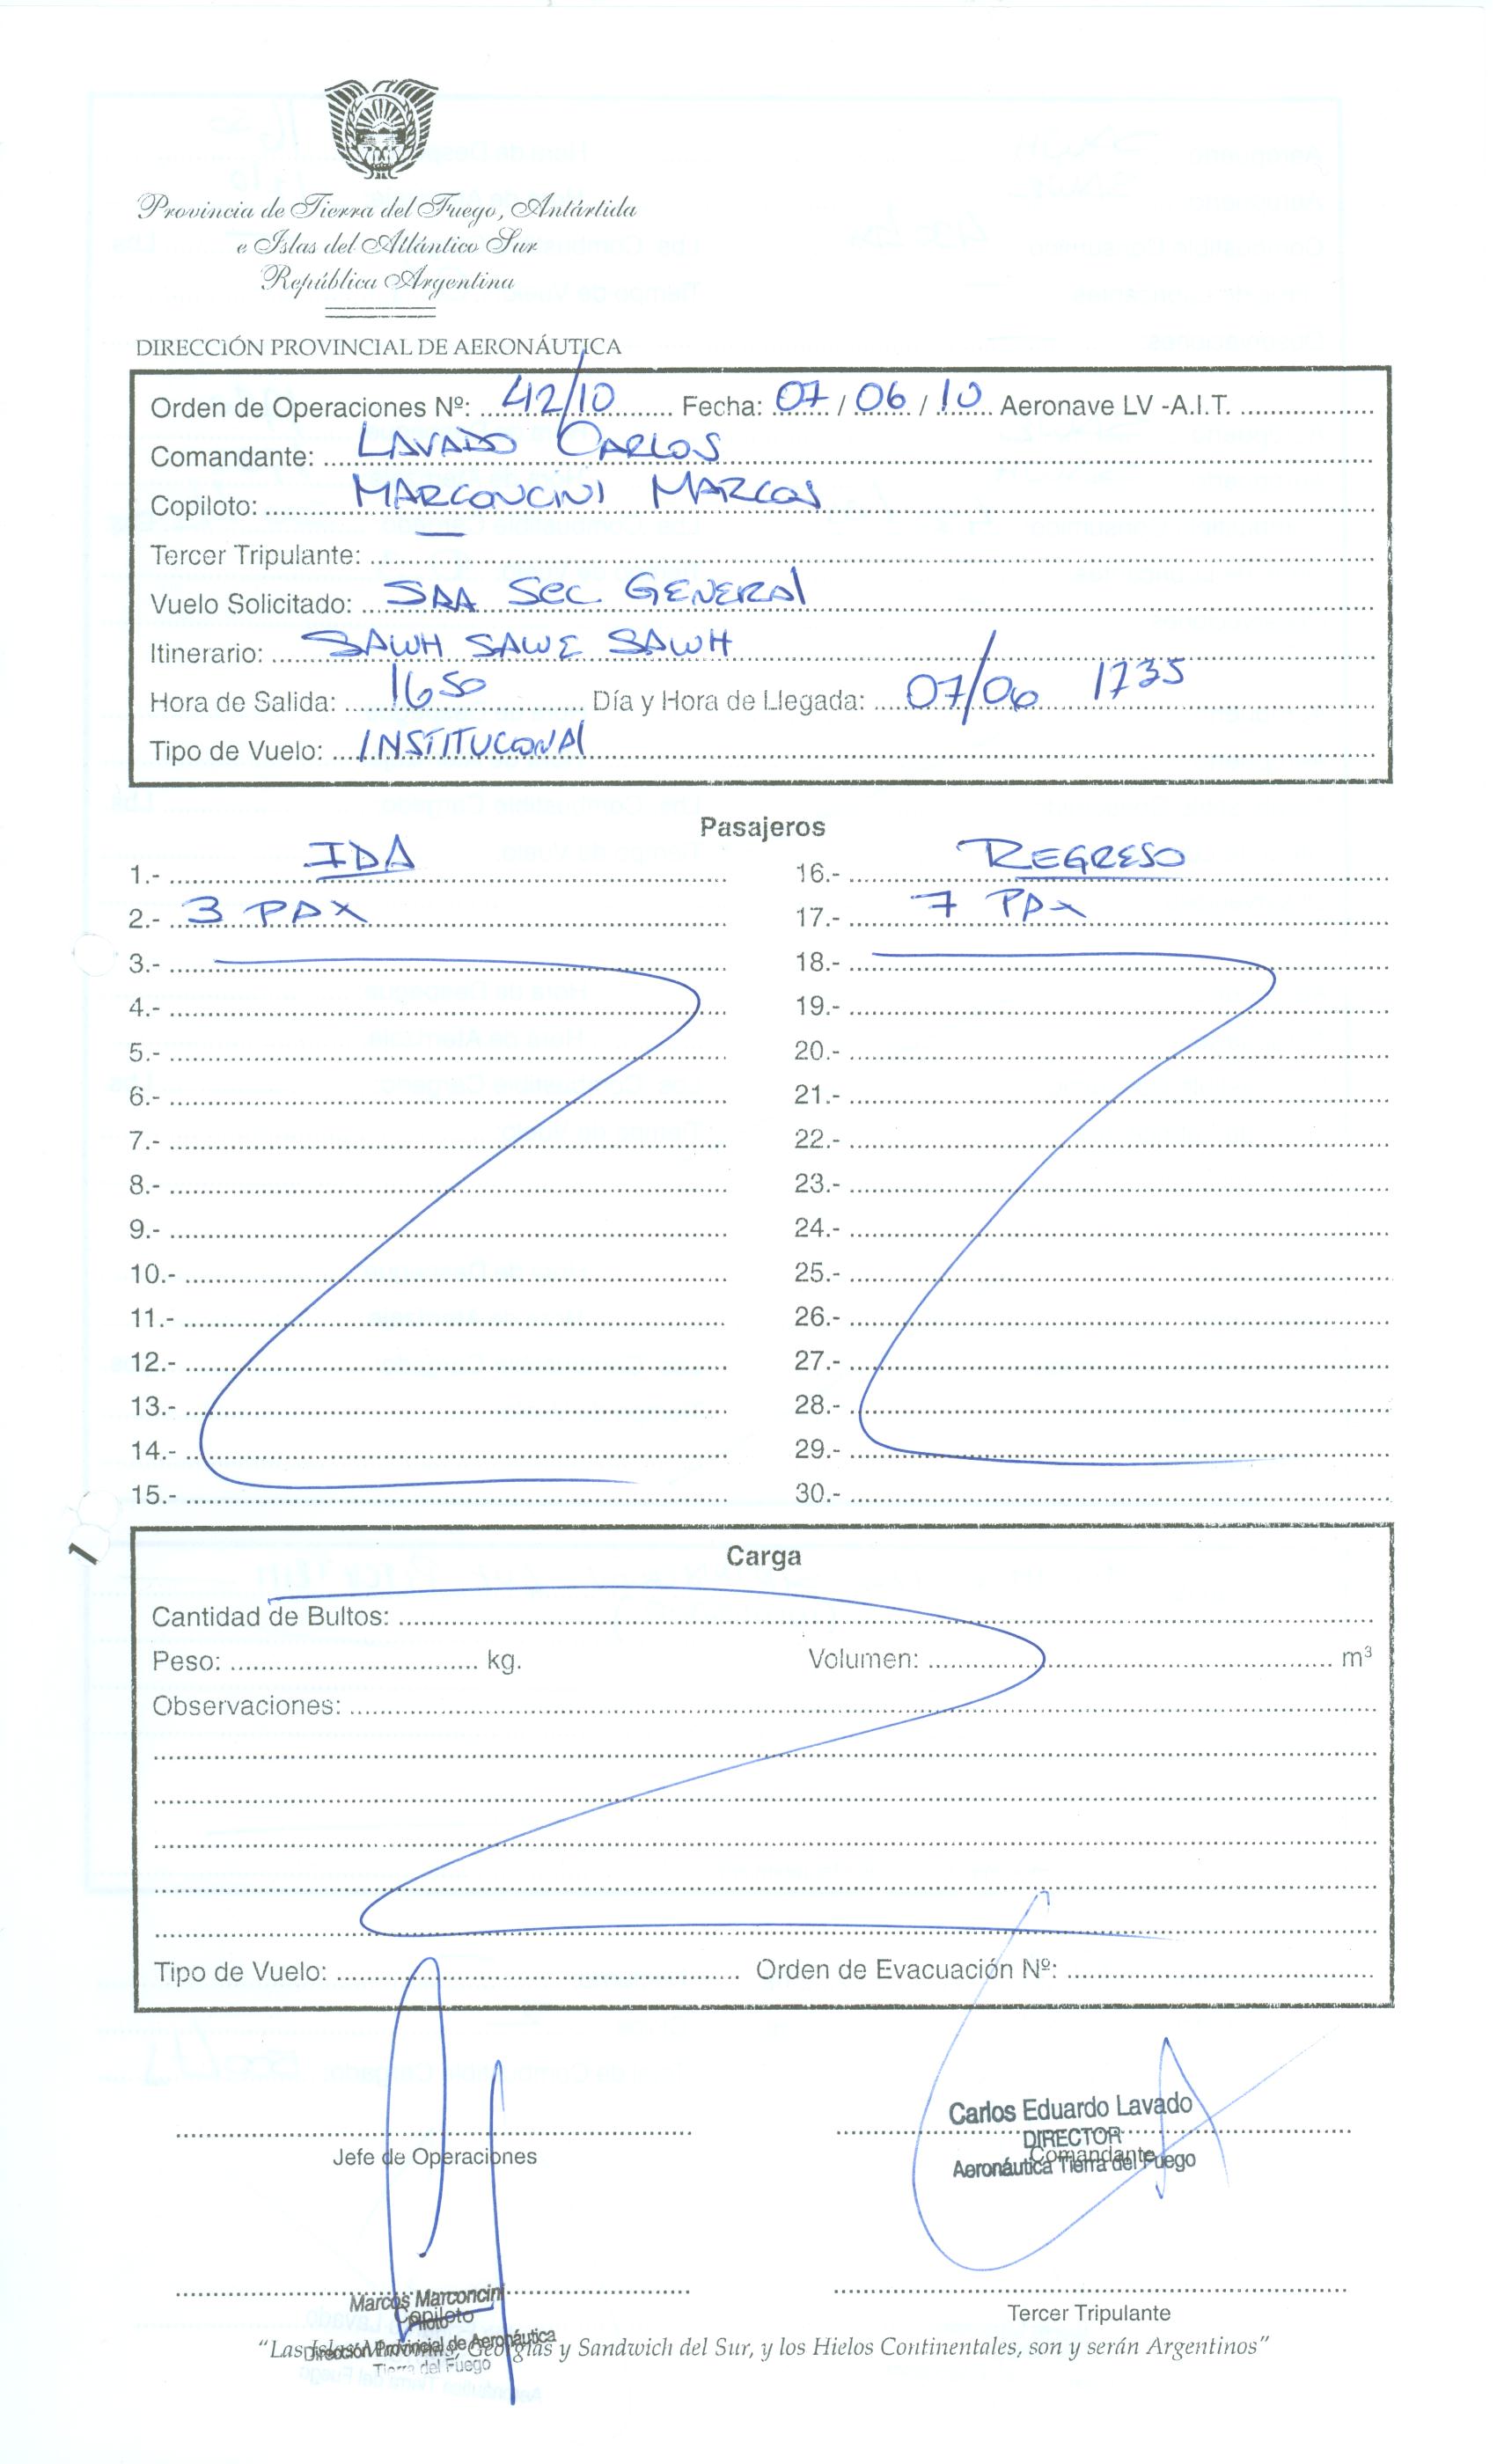 Provincia de Tierra del Fuego, Antártida
e Islas del Atlántico Sur
República Argentina
DIRECCIÓN PROVINCIAL DE AERONÁUTICA
Orden de Operaciones Nº: 42/10 Fecha: 07 / 06 / 10 Aeronave LV -A.I.T.
Comandante: LAVADO CARLOS
Copiloto: MARCONCINI MARCOS
Tercer Tripulante: —
Vuelo Solicitado: SAA SEC. GENERAL
Itinerario: SAWH SAWE SAWH
Hora de Salida: 1650 Día y Hora de Llegada: 07/06 1735
Tipo de Vuelo: INSTITUCIONAL
Pasajeros
1.- IDA 16.- REGRESO
2.- 3 PAX 17.- 7 PAX
3.- 18.-
4.- 19.-
5.- 20.-
6.- 21.-
7.- 22.-
8.- 23.-
9.- 24.-
10.- 25.-
11.- 26.-
12.- 27.-
13.- 28.-
14.- 29.-
15.- 30.-
Carga
Cantidad de Bultos:
Peso: kg. Volumen: m³
Observaciones:
Tipo de Vuelo: Orden de Evacuación Nº:
Carlos Eduardo Lavado
DIRECTOR
Jefe de Operaciones Comandante
Aeronáutica Tierra del Fuego
Marcos Marconcini
Copiloto
Piloto
Tercer Tripulante
Dirección Provincial de Aeronáutica
"Las Islas Malvinas, Georgias y Sandwich del Sur, y los Hielos Continentales, son y serán Argentinos"
Tierra del Fuego